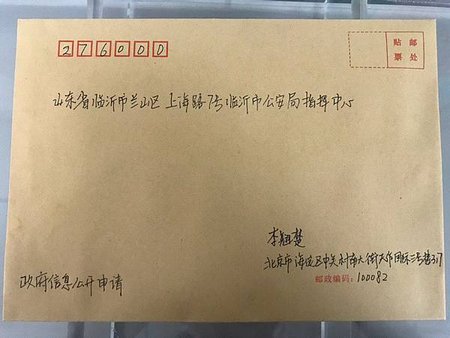 276000
贴 邮
票 处
山东省临沂市兰山区上海路7号临沂市公安局指挥中心
李翘楚
北京市海淀区中关村南大街天作国际
邮政编码：100082
政府信息公开申请